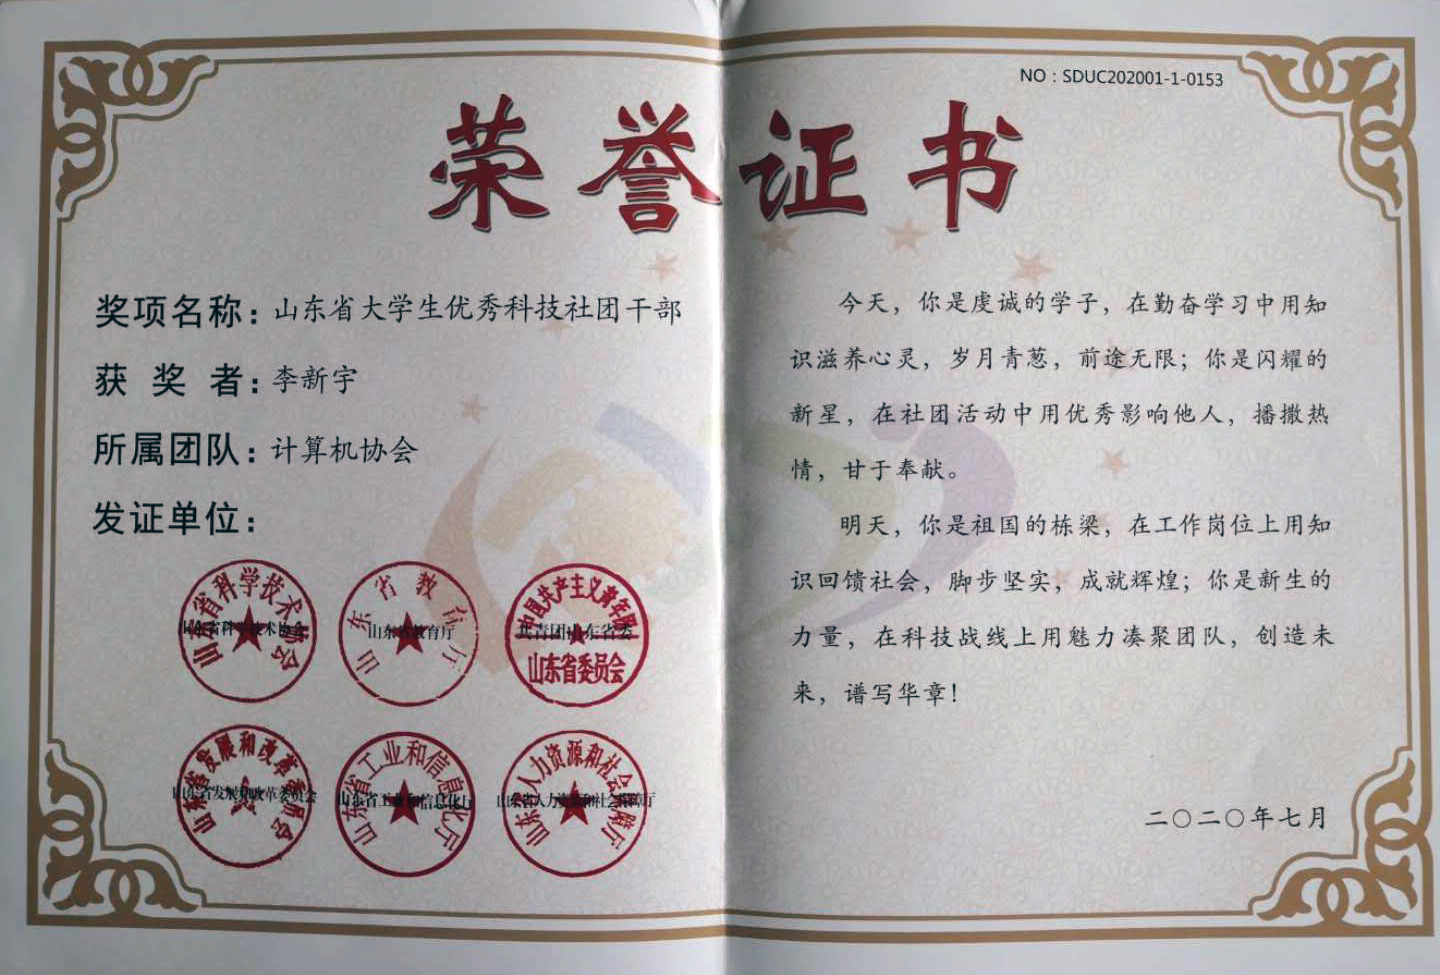 NO：SDUC202001-1-0153
荣誉证书
奖项名称：山东省大学生优秀科技社团干部
获奖者：李新宇
所属团队：计算机协会
发证单位：
山东省科学技术协会
山东省科学技术协会
山东省教育厅
山东省教育厅
中国共产主义青年团
共青团山东省委
山东省委员会
山东省发展和改革委员会
山东省发展和改革委员会
山东省工业和信息化厅
山东省工业和信息化厅
山东省人力资源和社会保障厅
山东省人力资源和社会保障厅
今天，你是虔诚的学子，在勤奋学习中用知
识滋养心灵，岁月青葱，前途无限；你是闪耀的
新星，在社团活动中用优秀影响他人，播撒热
情，甘于奉献。
明天，你是祖国的栋梁，在工作岗位上用知
识回馈社会，脚步坚实，成就辉煌；你是新生的
力量，在科技战线上用魅力凑聚团队，创造未
来，谱写华章！
二〇二〇年七月